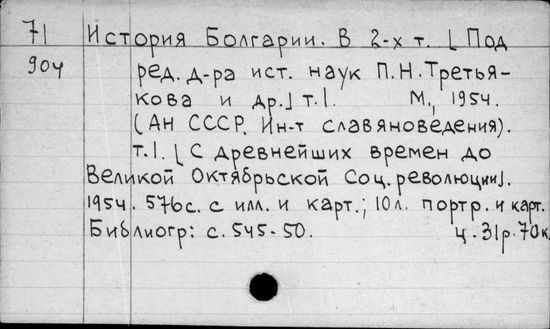 71 История Болгарии. В 2-х т. [Под
904 ред. д-ра ист. наук П.Н.Третья-
кова и др.] т.1. М., 1954.
(АН СССР. Ин-т славяноведения).
т.1. [С древнейших времен до
Великой Октябрьской Соц. революции].
1954. 576с. с илл. и карт.; 10л. портр. и карт.
Библиогр: с. 545-50. ц. 31р. 70к.